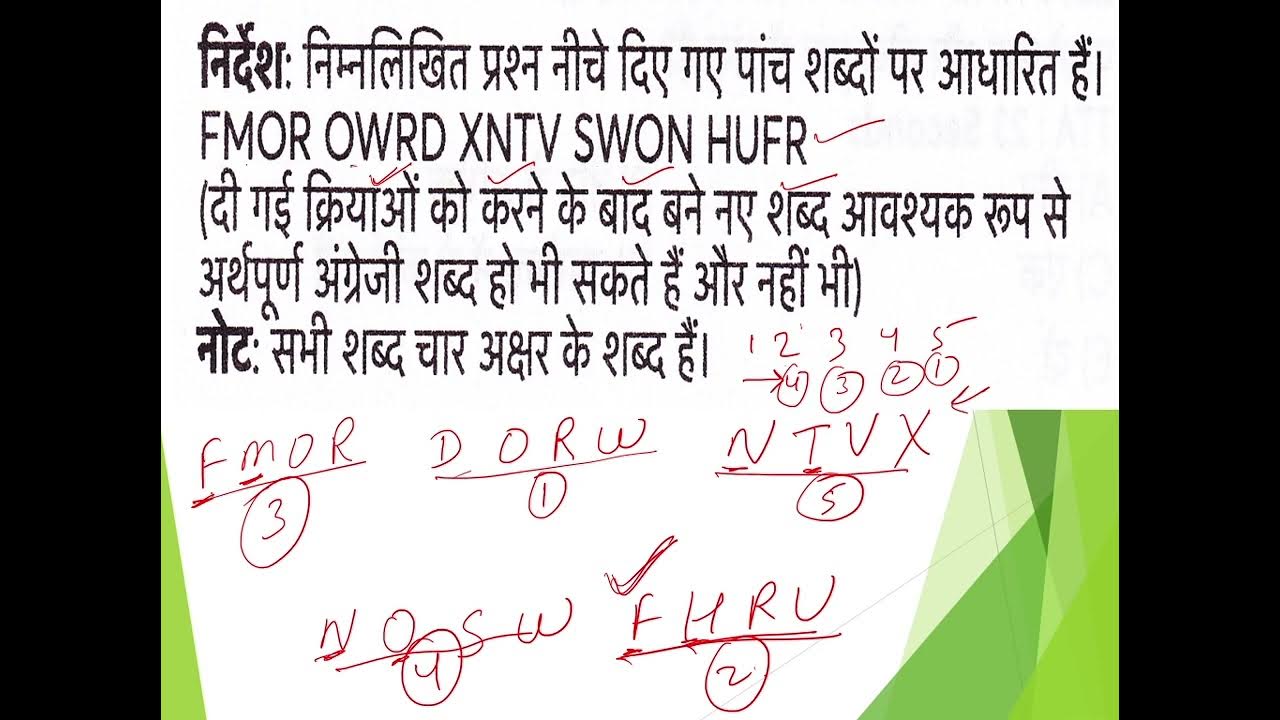 निर्देश: निम्नलिखित प्रश्न नीचे दिए गए पांच शब्दों पर आधारित हैं।
FMOR OWRD XNTV SWON HUFR
(दी गई क्रियाओं को करने के बाद बने नए शब्द आवश्यक रूप से
अर्थपूर्ण अंग्रेजी शब्द हो भी सकते हैं और नहीं भी)
नोट: सभी शब्द चार अक्षर के शब्द हैं।
1 2 3 4 5
4 3 2 1
FMOR DORW NTVX
3 1 5
NOSW FHRU
4 2